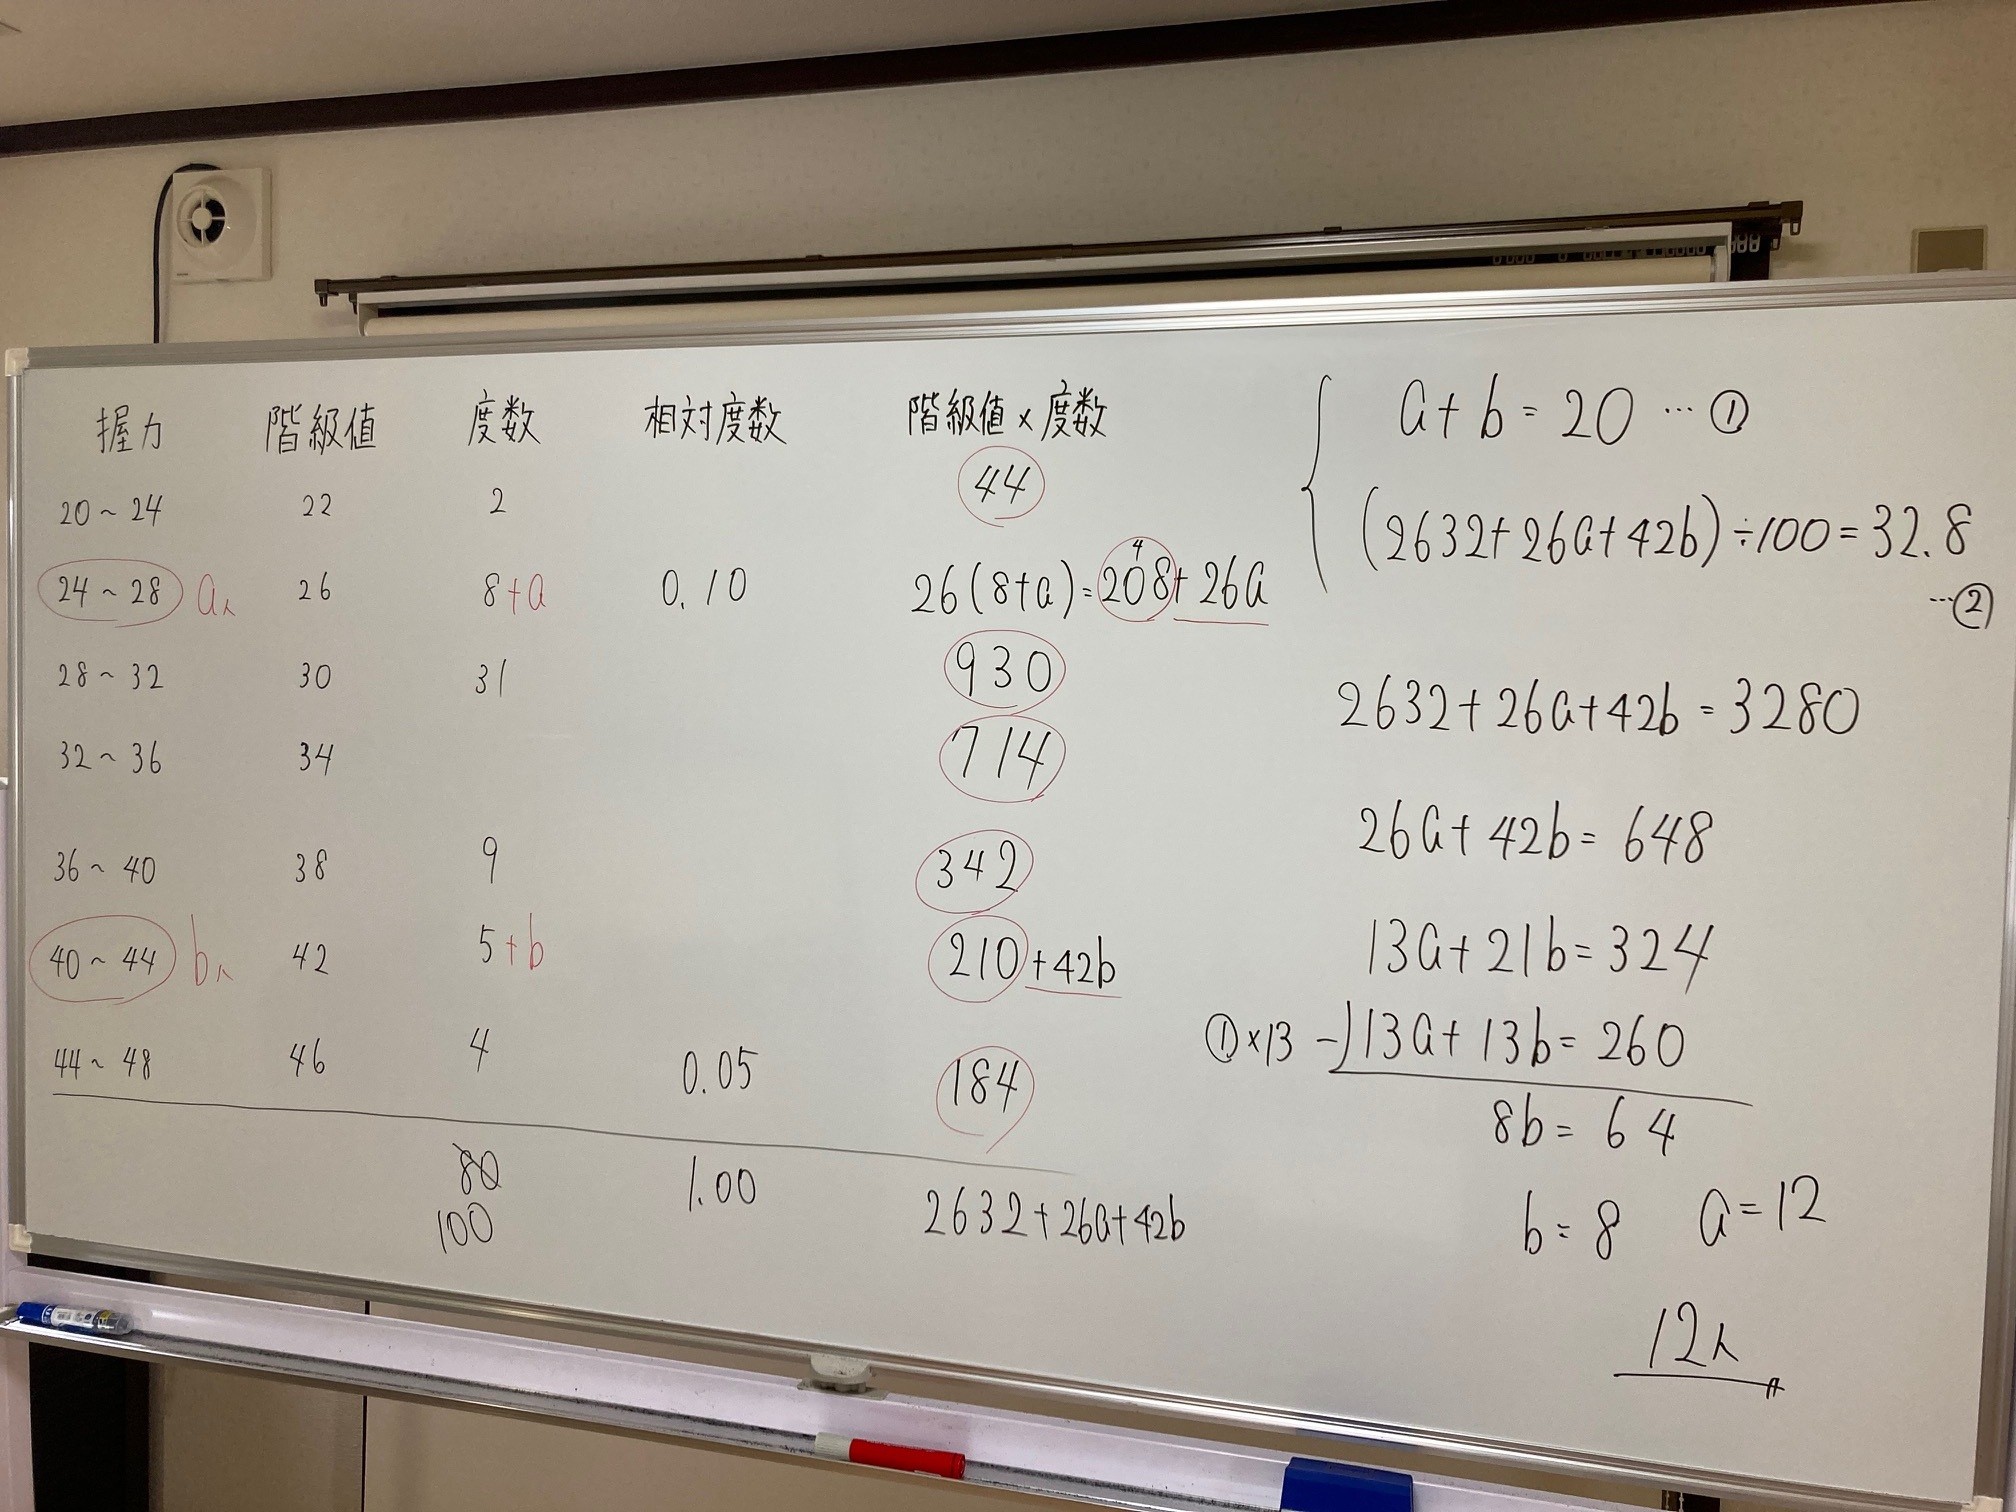 握力 階級値 度数 相対度数 階級値×度数
20~24 22 2 44
24~28 a人 26 8+a 0.10 26(8+a)=208+26a
4
28~32 30 31 930
32~36 34 714
36~40 38 9 342
40~44 b人 42 5+b 210+42b
44~48 46 4 0.05 184
80 1.00 2632+26a+42b
100
a+b=20 … ①
(2632+26a+42b)÷100=32.8
…②
2632+26a+42b=3280
26a+42b=648
13a+21b=324
①×13 -)13a+13b=260
8b=64
b=8 a=12
12人